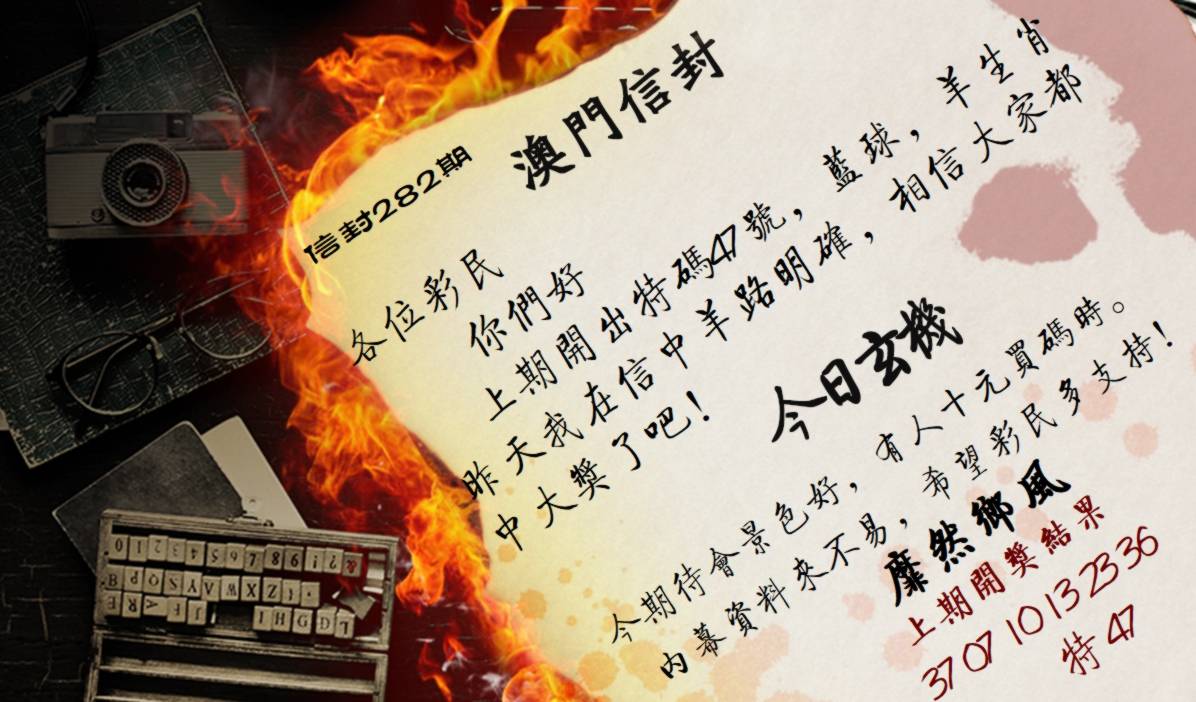 澳門信封
信封282期
各位彩民
你們好
上期開出特碼47號，藍球，羊生肖
昨天我在信中羊路明確，相信大家都
中大獎了吧！
今日玄機
今期待會景色好，有人十元買碼時。
內幕資料來不易，希望彩民多支持！
靡然鄉風
上期開獎結果
37 07 10 13 23 36
特 47